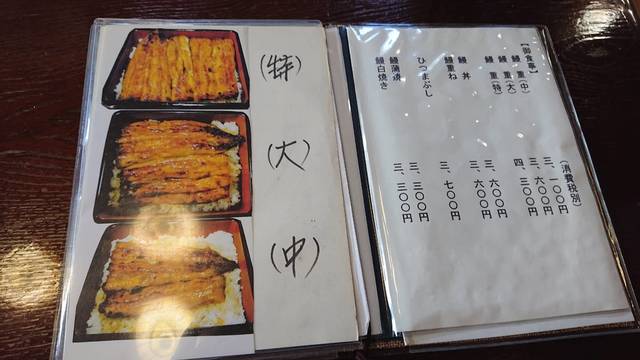 (特)
(大)
(中)
【御食事】 (消費税別)
鰻 重(中) 三、一〇〇円
鰻 重(大) 三、六〇〇円
鰻 重(特) 四、三〇〇円
鰻 丼 三、六〇〇円
鰻重ね 三、六〇〇円
ひつまぶし 三、七〇〇円
鰻蒲焼 三、三〇〇円
鰻白焼き 三、三〇〇円